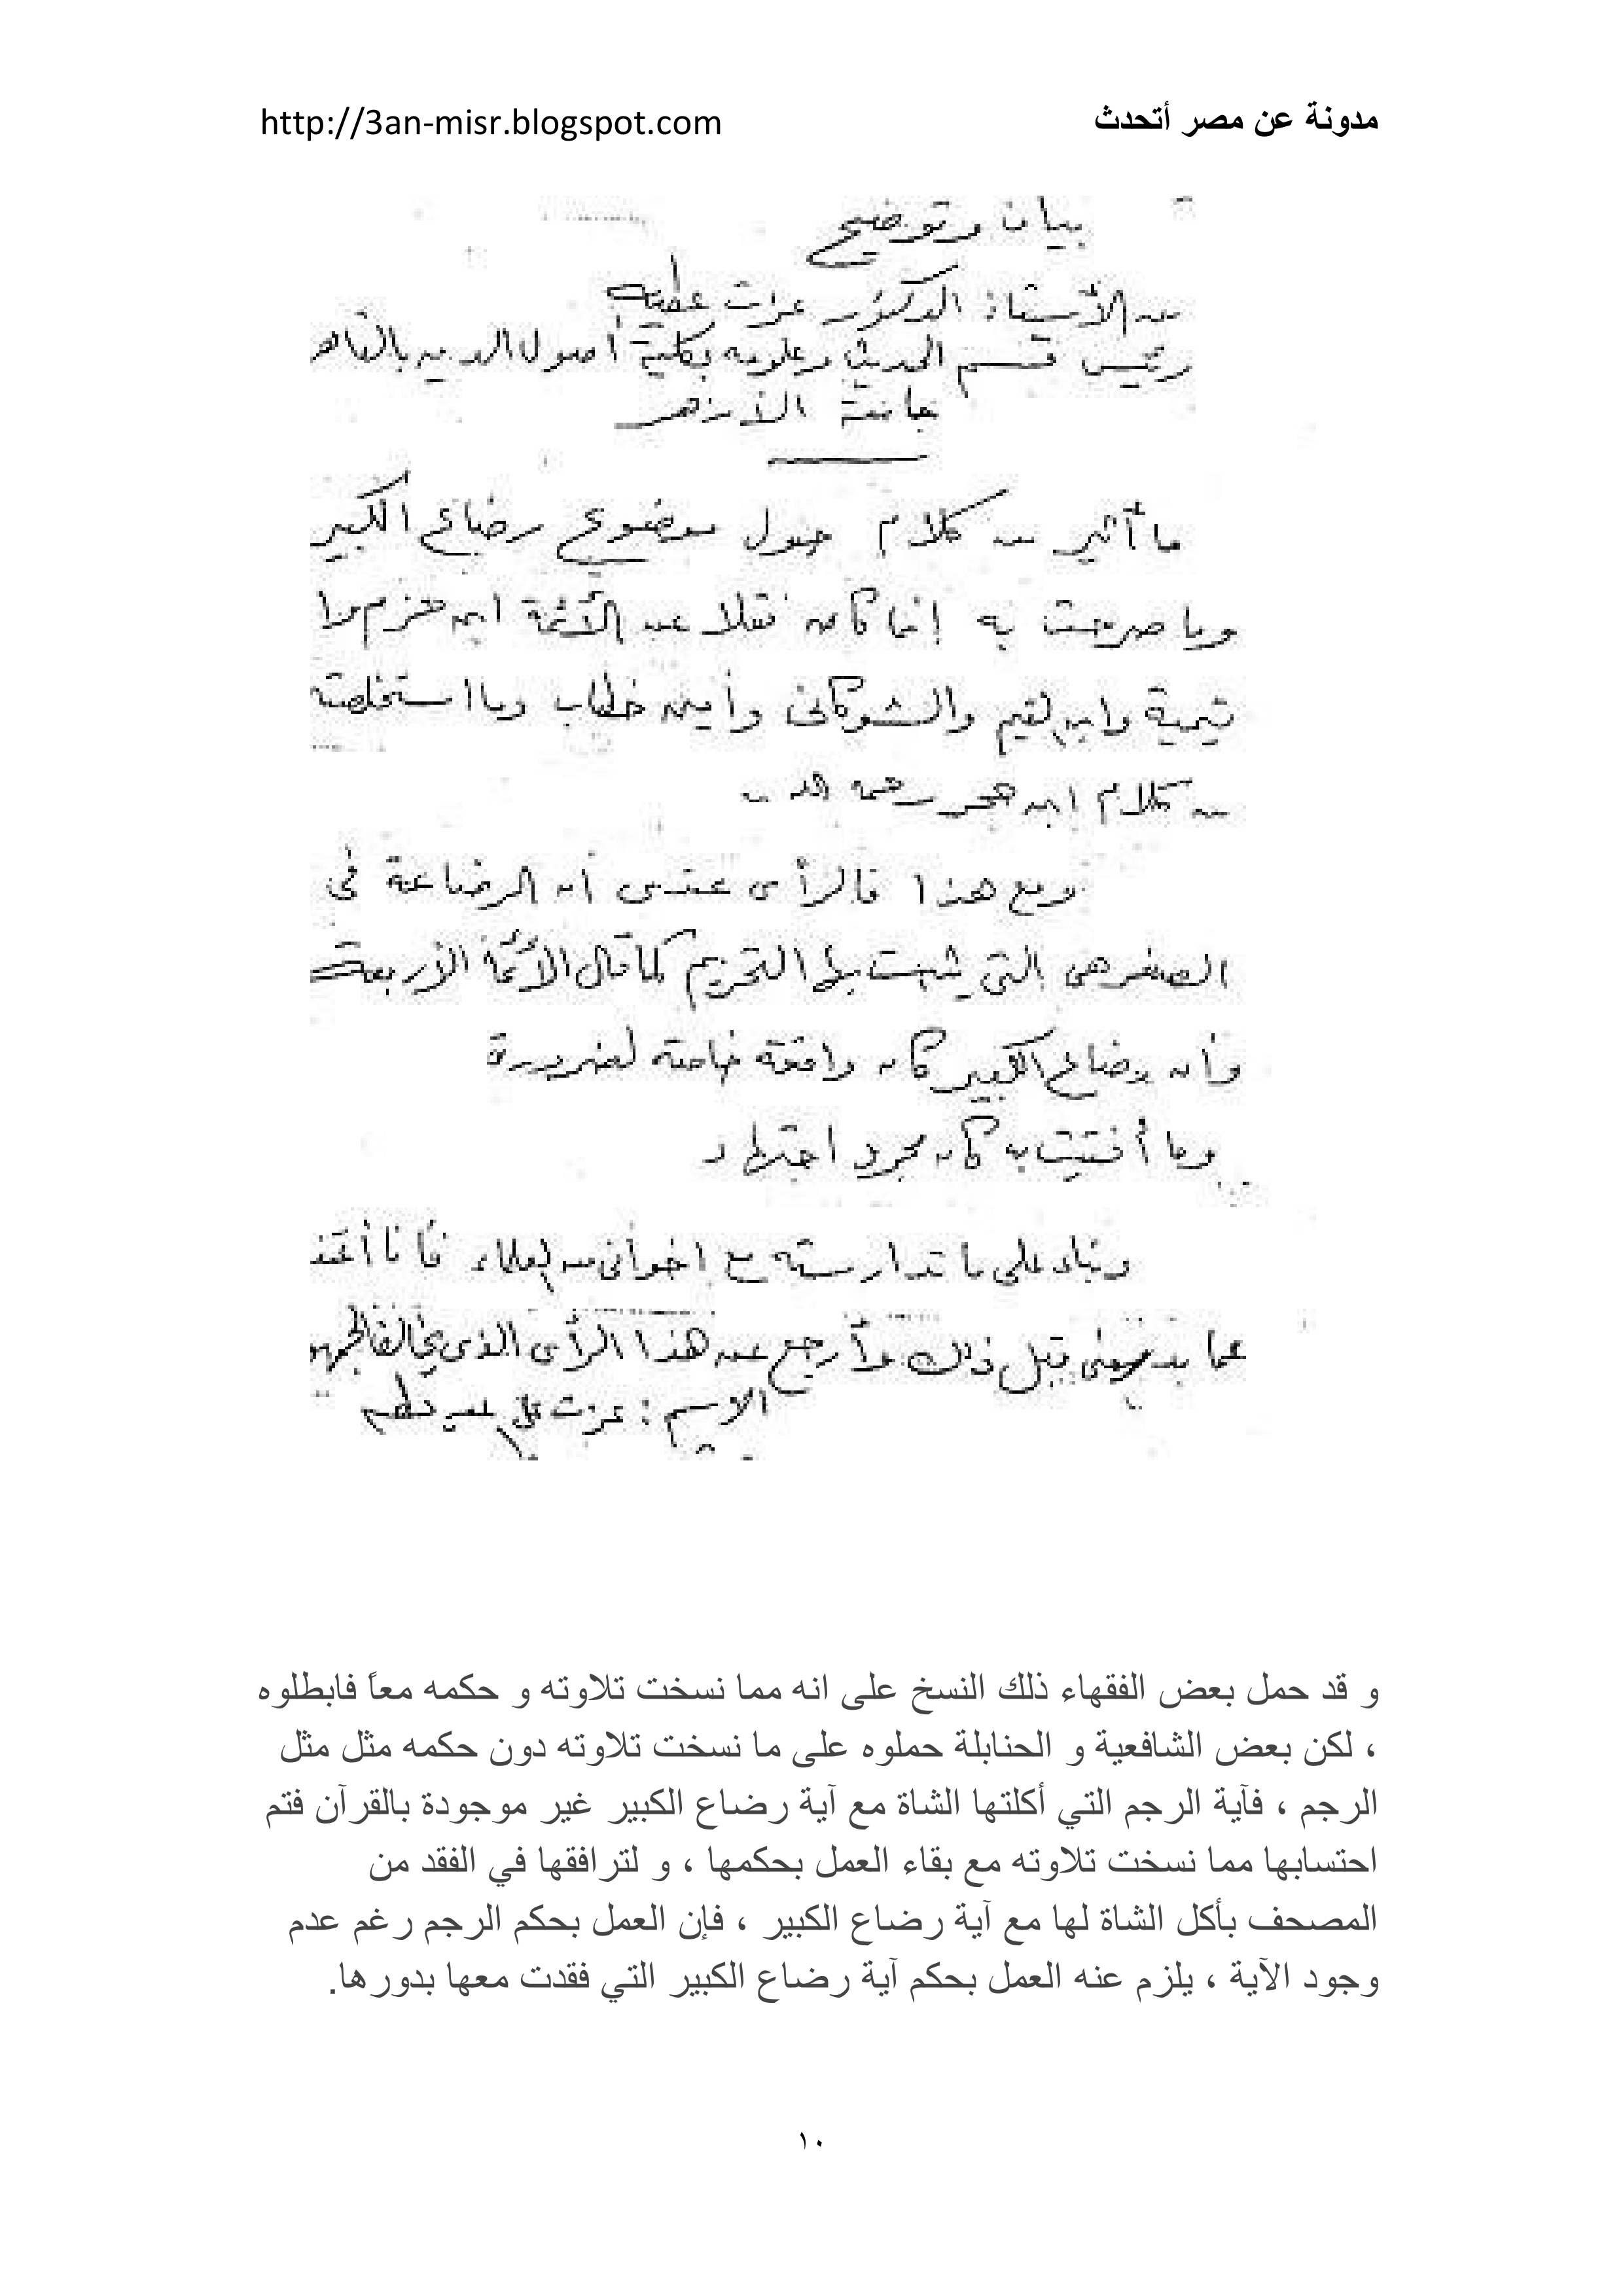 مدونة عن مصر أتحدث http://3an-misr.blogspot.com
بيان وتوضيح
من الأستاذ الدكتور عزت عطيه
رئيس قسم الحديث وعلومه بكلية أصول الدين بالقاهر
جامعة الأزهر
ما أثير من كلام حول موضوع رضاع الكبير
وما صرحت به إنما كان نقلا عن الأئمة ابن حزم
تيمية وابن القيم والشوكانى وأمين خطاب وما استخلصته
من كلام ابن حجر رحمه الله
ومع هذا فالرأى عندى أن الرضاعة فى
الصغر هى التى يثبت بها التحريم كما قال الأئمة الأربعة
وأن رضاع الكبير كان واقعة خاصة لضرورة
وما أفتيت به كان مجرد اجتهاد
وبناء على ما تدارسته مع اخوانى من العلماء فأنا أعتذ
عما بدر منى قبل ذلك وأرجع عن هذا الرأى الذى يخالف الجمهو
الاسم : عزت على عطيه
و قد حمل بعض الفقهاء ذلك النسخ على انه مما نسخت تلاوته و حكمه معاً فابطلوه
، لكن بعض الشافعية و الحنابلة حملوه على ما نسخت تلاوته دون حكمه مثل مثل
الرجم ، فآية الرجم التي أكلتها الشاة مع آية رضاع الكبير غير موجودة بالقرآن فتم
احتسابها مما نسخت تلاوته مع بقاء العمل بحكمها ، و لترافقها في الفقد من
المصحف بأكل الشاة لها مع آية رضاع الكبير ، فإن العمل بحكم الرجم رغم عدم
وجود الآية ، يلزم عنه العمل بحكم آية رضاع الكبير التي فقدت معها بدورها.
١٠